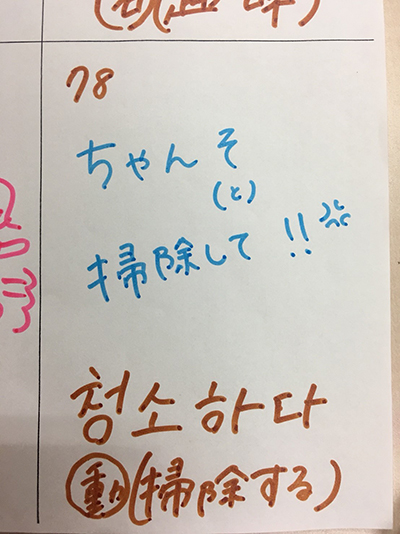 78
ちゃんそ
(と)
掃除して !!
청소하다
動(掃除する)